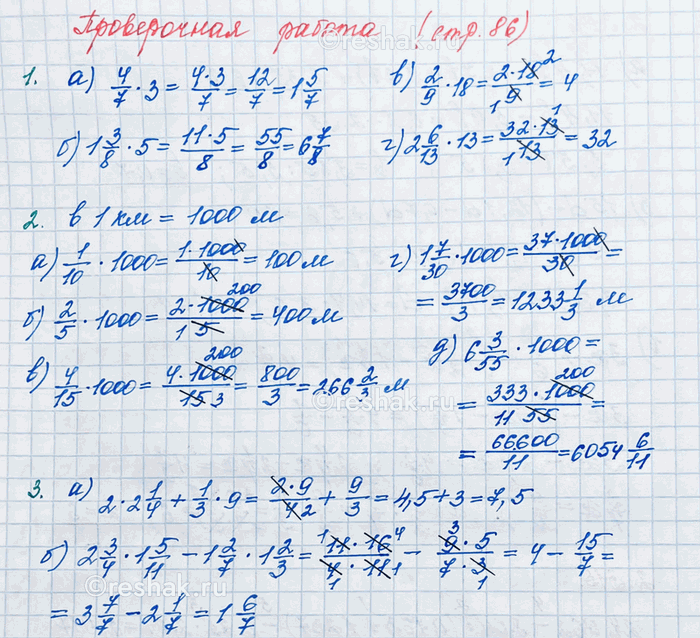 Проверочная работа (стр. 86)
1. а) 4/7 · 3 = 4·3/7 = 12/7 = 1 5/7
в) 2/9 · 18 = 2·18 2/1 9 = 4
б) 1 3/8 · 5 = 11·5/8 = 55/8 = 6 7/8
г) 2 6/13 · 13 = 32·13 1/1 13 = 32
2. в 1 км = 1000 м
а) 1/10 · 1000 = 1·1000/10 = 100 м
б) 2/5 · 1000 = 2·1000 200/1 5 = 400 м
в) 4/15 · 1000 = 4·1000 200/15 3 = 800/3 = 266 2/3 м
г) 1 7/30 · 1000 = 37·1000/30 =
= 3700/3 = 1233 1/3 м
д) 6 3/55 · 1000 =
= 333·1000 200/11 55 =
= 66600/11 = 6054 6/11
3. а) 2 · 2 1/4 + 1/3 · 9 = 2·9/4 2 + 9/3 = 4,5 + 3 = 7,5
б) 2 3/4 · 1 5/11 − 1 2/7 · 1 2/3 = 1 11·16 4/4 1·11 1 − 9 3·5/7·3 1 = 4 − 15/7 =
= 3 7/7 − 2 1/7 = 1 6/7
©reshak.ru
©reshak.ru
©reshak.ru
©reshak.ru
©reshak.ru
©reshak.ru